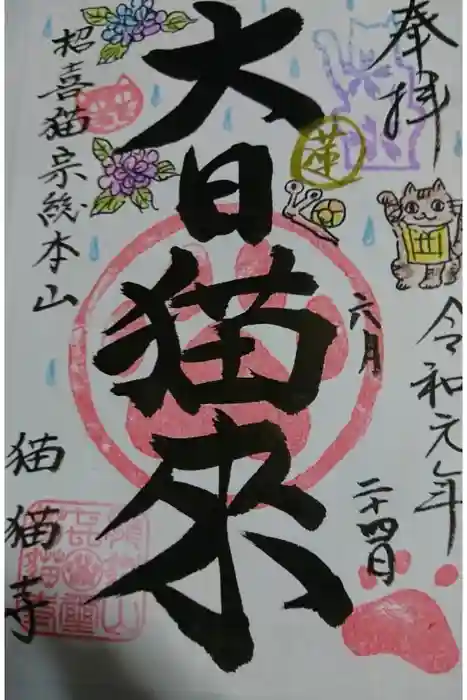 奉拝
令和元年
六月
二十四日
大日猫来
招喜猫宗総本山
猫猫寺